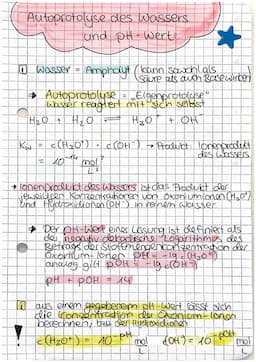 Autoprotolyse des Wassers
und pH-Wert
i Wasser = Ampholyt (kann sowohl als
Säure als auch Base wirken)
→ Autoprotolyse = „Eigenprotolyse"
Wasser reagiert mit sich selbst
H₂O + H₂O ⇌ H₃O⁺ + OH⁻
Kw = c(H₃O⁺) · c(OH⁻) → Produkt Ionenprodukt
des Wassers
= 10⁻¹⁴ mol²/L²
→ Ionenprodukt des Wassers ist das Produkt der
jeweiligen Konzentrationen von Oxoniumionen (H₃O⁺)
und Hydroxidionen (OH⁻) in reinem Wasser
→ Der pH-Wert einer Lösung ist definiert als
der negativ dekadische Logarithmus des
Betrags der Stoffmengenkonzentration der
Oxonium-Ionen pH = -lg c(H₃O⁺)
analog gilt pOH = -lg c(OH⁻)
pH + pOH = 14
i aus einem gegebenem pH-Wert lässt sich
die Konzentration der Oxonium-Ionen
berechnen, bzw. der Hydroxidionen
! c(H₃O⁺) = 10^-pH mol/L c(OH⁻) = 10^-pOH mol/L